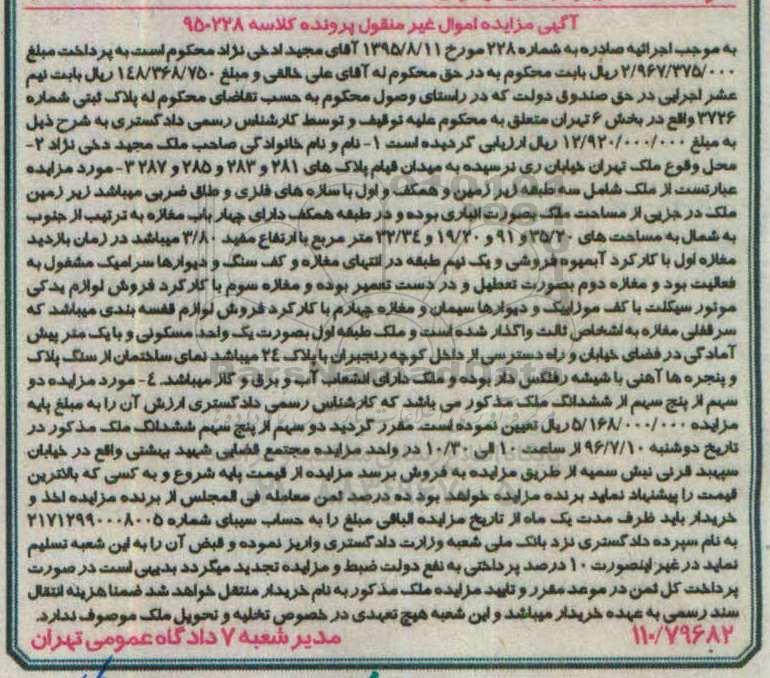 آگهی مزایده اموال غیر منقول پرونده کلاسه ۹۵۰۲۲۸
به موجب اجرائیه صادره به شماره ۲۲۸ مورخ ۱۳۹۵/۸/۱۱ آقای مجید ادخی نژاد محکوم است به پرداخت مبلغ
۲/۹۶۷/۳۷۵/۰۰۰ ریال بابت محکوم به در حق محکوم له آقای علی خالقی و مبلغ ۱۴۸/۳۶۸/۷۵۰ ریال بابت نیم
عشر اجرایی در حق صندوق دولت که در راستای وصول محکوم به حسب تقاضای محکوم له پلاک ثبتی شماره
۳۷۲۶ واقع در بخش ۶ تهران متعلق به محکوم علیه توقیف و توسط کارشناس رسمی دادگستری به شرح ذیل
به مبلغ ۱۲/۹۲۰/۰۰۰/۰۰۰ ریال ارزیابی گردیده است ۱- نام و نام خانوادگی صاحب ملک مجید دخی نژاد ۲-
محل وقوع ملک تهران خیابان ری نرسیده به میدان قیام پلاک های ۲۸۱ و ۲۸۳ و ۲۸۵ و ۲۸۷ ۳- مورد مزایده
عبارتست از ملک شامل سه طبقه زیر زمین و همکف و اول با سازه های فلزی و طاق ضربی میباشد زیر زمین
ملک در جزیی از مساحت ملک بصورت انباری بوده و در طبقه همکف دارای چهار باب مغازه به ترتیب از جنوب
به شمال به مساحت های ۳۵/۲۰ و ۹۱ و ۱۹/۲۰ و ۳۲/۳۴ متر مربع با ارتفاع مفید ۳/۸۰ میباشد در زمان بازدید
مغازه اول با کارکرد آبمیوه فروشی و یک نیم طبقه در انتهای مغازه و کف سنگ و دیوارها سرامیک مشغول به
فعالیت بود و مغازه دوم بصورت تعطیل و در دست تعمیر بوده و مغازه سوم با کارکرد فروش لوازم یدکی
موتور سیکلت با کف موزاییک و دیوارها سیمان و مغازه چهارم با کارکرد فروش لوازم قفسه بندی میباشد که
سرقفلی مغازه به اشخاص ثالث واگذار شده است و ملک طبقه اول بصورت یک واحد مسکونی و با یک متر پیش
آمادگی در فضای خیابان و راه دسترسی از داخل کوچه رنجبران با پلاک ۲۴ میباشد نمای ساختمان از سنگ پلاک
و پنجره ها آهنی با شیشه رفلکس دار بوده و ملک دارای انشعاب آب و برق و گاز میباشد. ۴- مورد مزایده دو
سهم از پنج سهم از ششدانگ ملک مذکور می باشد که کارشناس رسمی دادگستری ارزش آن را به مبلغ پایه
مزایده ۵/۱۶۸/۰۰۰/۰۰۰ ریال تعیین نموده است. مقرر گردید دو سهم از پنج سهم ششدانگ ملک مذکور در
تاریخ دوشنبه ۹۶/۷/۱۰ از ساعت ۱۰ الی ۱۰/۳۰ در واحد مزایده مجتمع قضایی شهید بهشتی واقع در خیابان
سپهبد قرنی نبش سمیه از طریق مزایده به فروش برسد مزایده از قیمت پایه شروع و به کسی که بالاترین
قیمت را پیشنهاد نماید برنده مزایده خواهد بود ده درصد ثمن معامله فی المجلس از برنده مزایده اخذ و
خریدار باید ظرف مدت یک ماه از تاریخ مزایده الباقی مبلغ را به حساب سیبای شماره ۲۱۷۱۲۹۹۰۰۰۸۰۰۵
به نام سپرده دادگستری نزد بانک ملی شعبه وزارت دادگستری واریز نموده و قبض آن را به این شعبه تسلیم
نماید در غیر اینصورت ۱۰ درصد پرداختی به نفع دولت ضبط و مزایده تجدید میگردد بدیهی است در صورت
پرداخت کل ثمن در موعد مقرر و تایید مزایده ملک مذکور به نام خریدار منتقل خواهد شد ضمنا هزینه انتقال
سند رسمی به عهده خریدار میباشد و این شعبه هیچ تعهدی در خصوص تخلیه و تحویل ملک موصوف ندارد.
۱۱۰/۷۹۶۸۲ مدیر شعبه ۷ دادگاه عمومی تهران